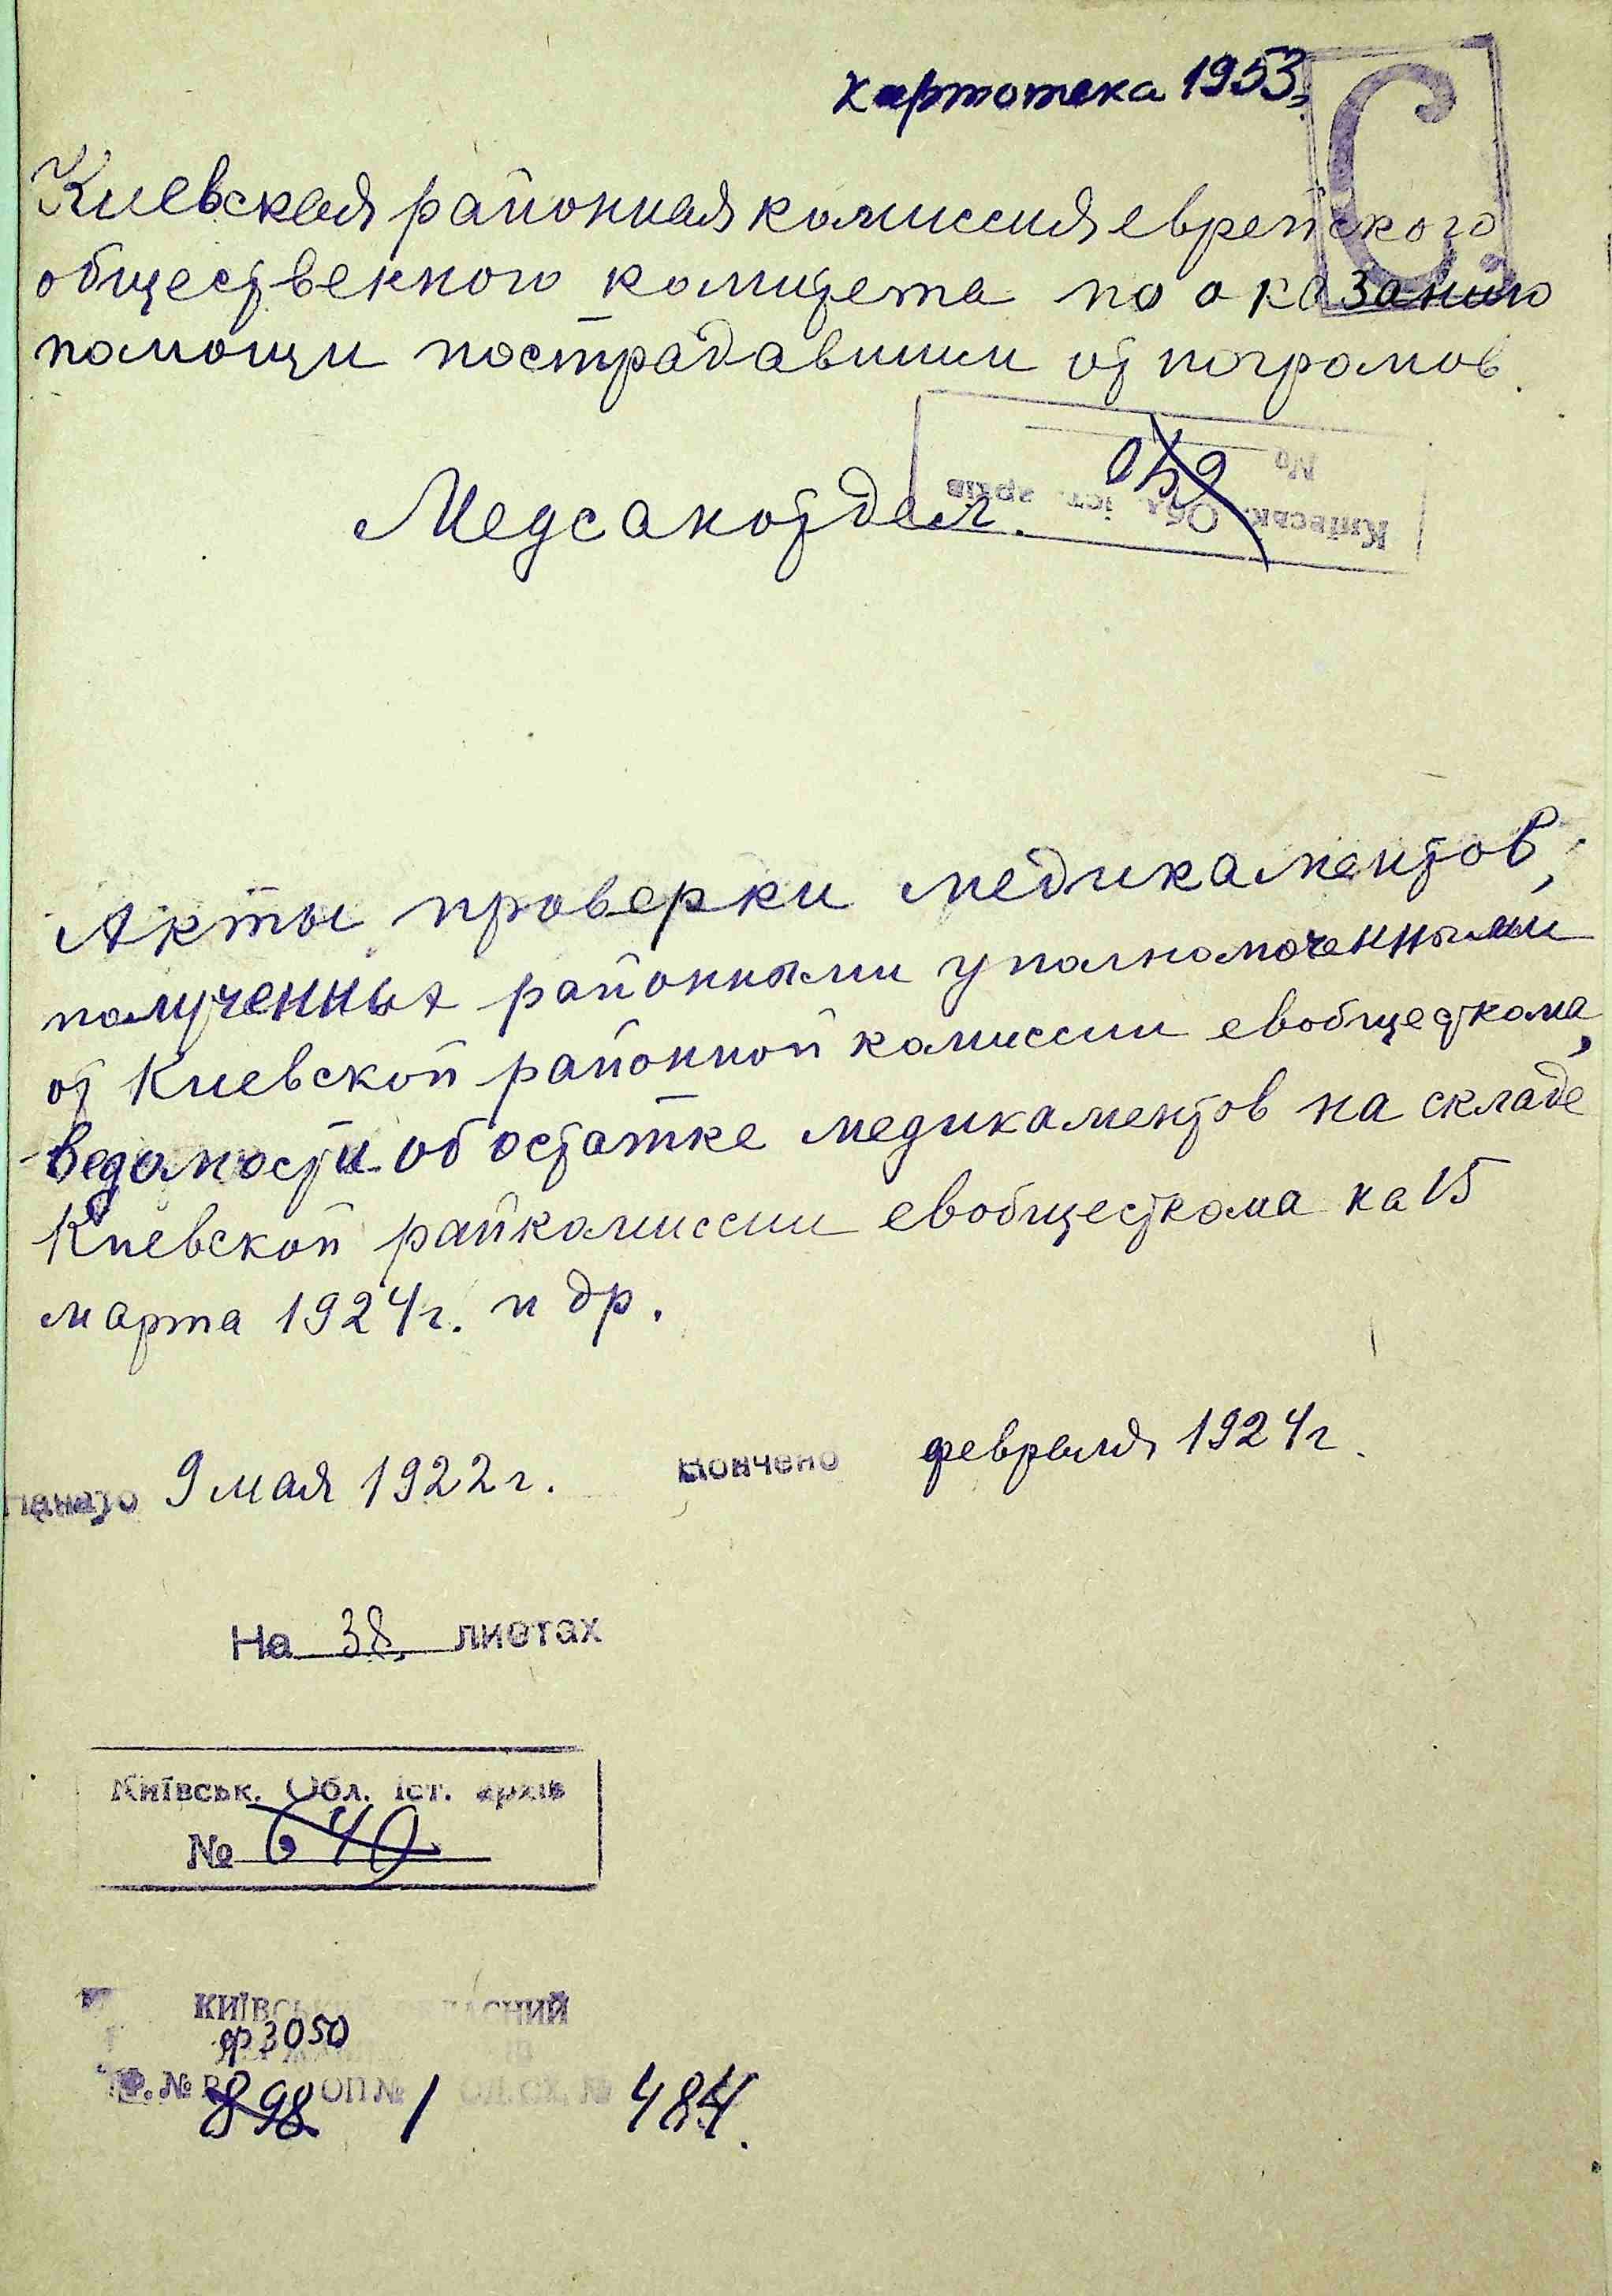 картотека 1953 г.
С
Киевская районная комиссия еврейского
общественного комитета по оказанию
помощи пострадавшим от погромов.
Київськ. Обл. іст. архів
№ 640
Медсанотдел.
Акты проверки медикаментов,
полученных районными уполномоченными
от Киевской районной комиссии евобщесткома,
ведомости об остатке медикаментов на складе
Киевской райкомиссии евобщесткома на 15
марта 1924 г. и др.
Начато 9 мая 1922 г. Кончено февраля 1924 г.
На 38 листах
Київськ. Обл. іст. архів
№ 640
КИЇВСЬКИЙ ОБЛАСНИЙ
ф 3050
Ф. № Р 898 ОП № 1 ОД. СХ. № 484.